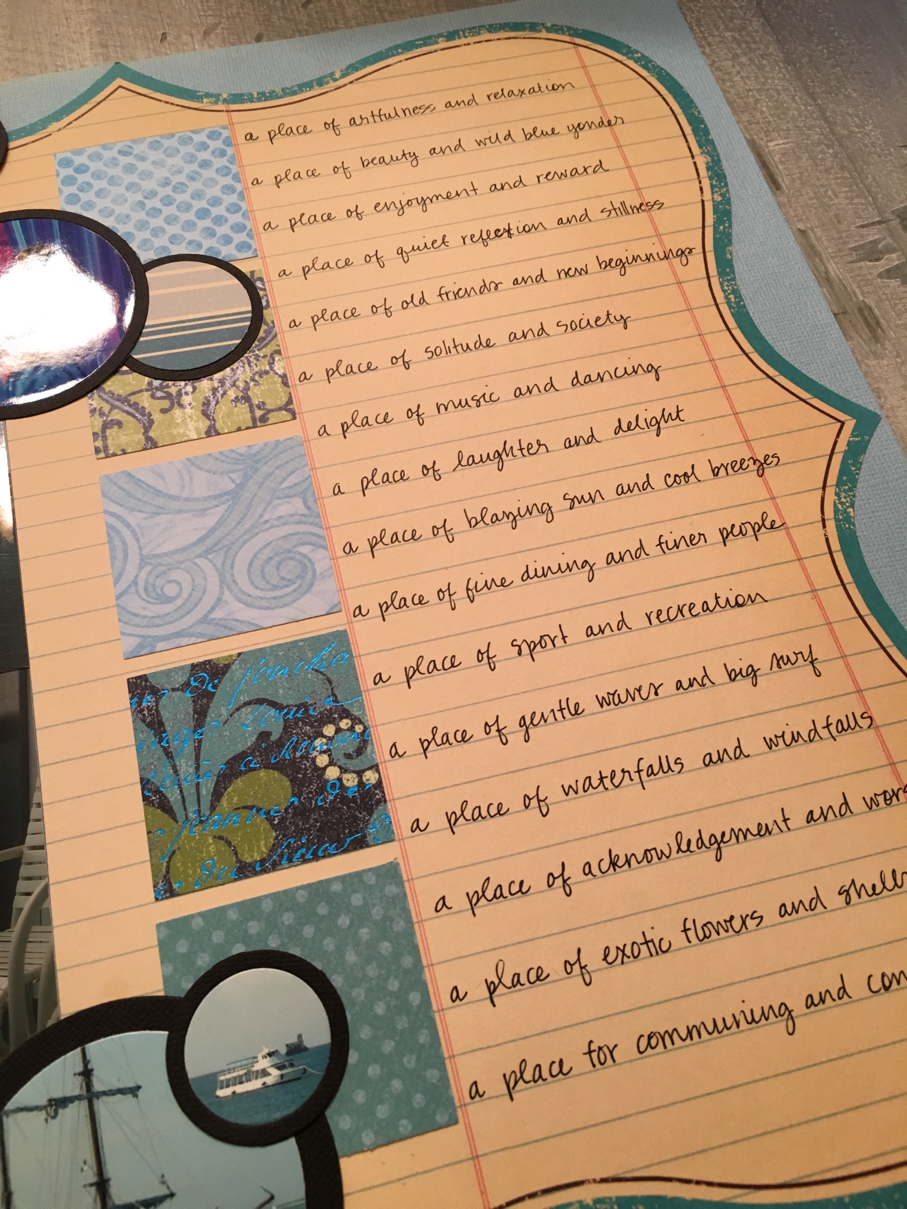 a place of artfulness and relaxation
a place of beauty and wild blue yonder
a place of enjoyment and reward
a place of quiet reflection and stillness
a place of old friends and new beginnings
a place of solitude and society
a place of music and dancing
a place of laughter and delight
a place of blazing sun and cool breezes
a place of fine dining and finer people
a place of sport and recreation
a place of gentle waves and big surf
a place of waterfalls and windfalls
a place of acknowledgement and
a place of exotic flowers and
a place for communing and